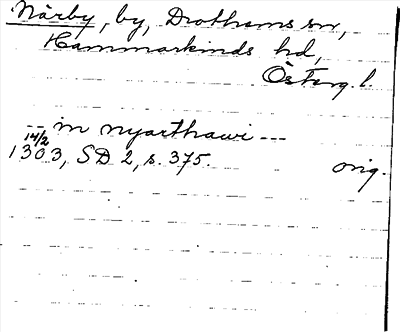 Närby, by, Drothems sn,
Hammarkinds hd,
Österg. l.
-- in nyarthawi ---
14/2
1303, SD 2, s. 375. orig.